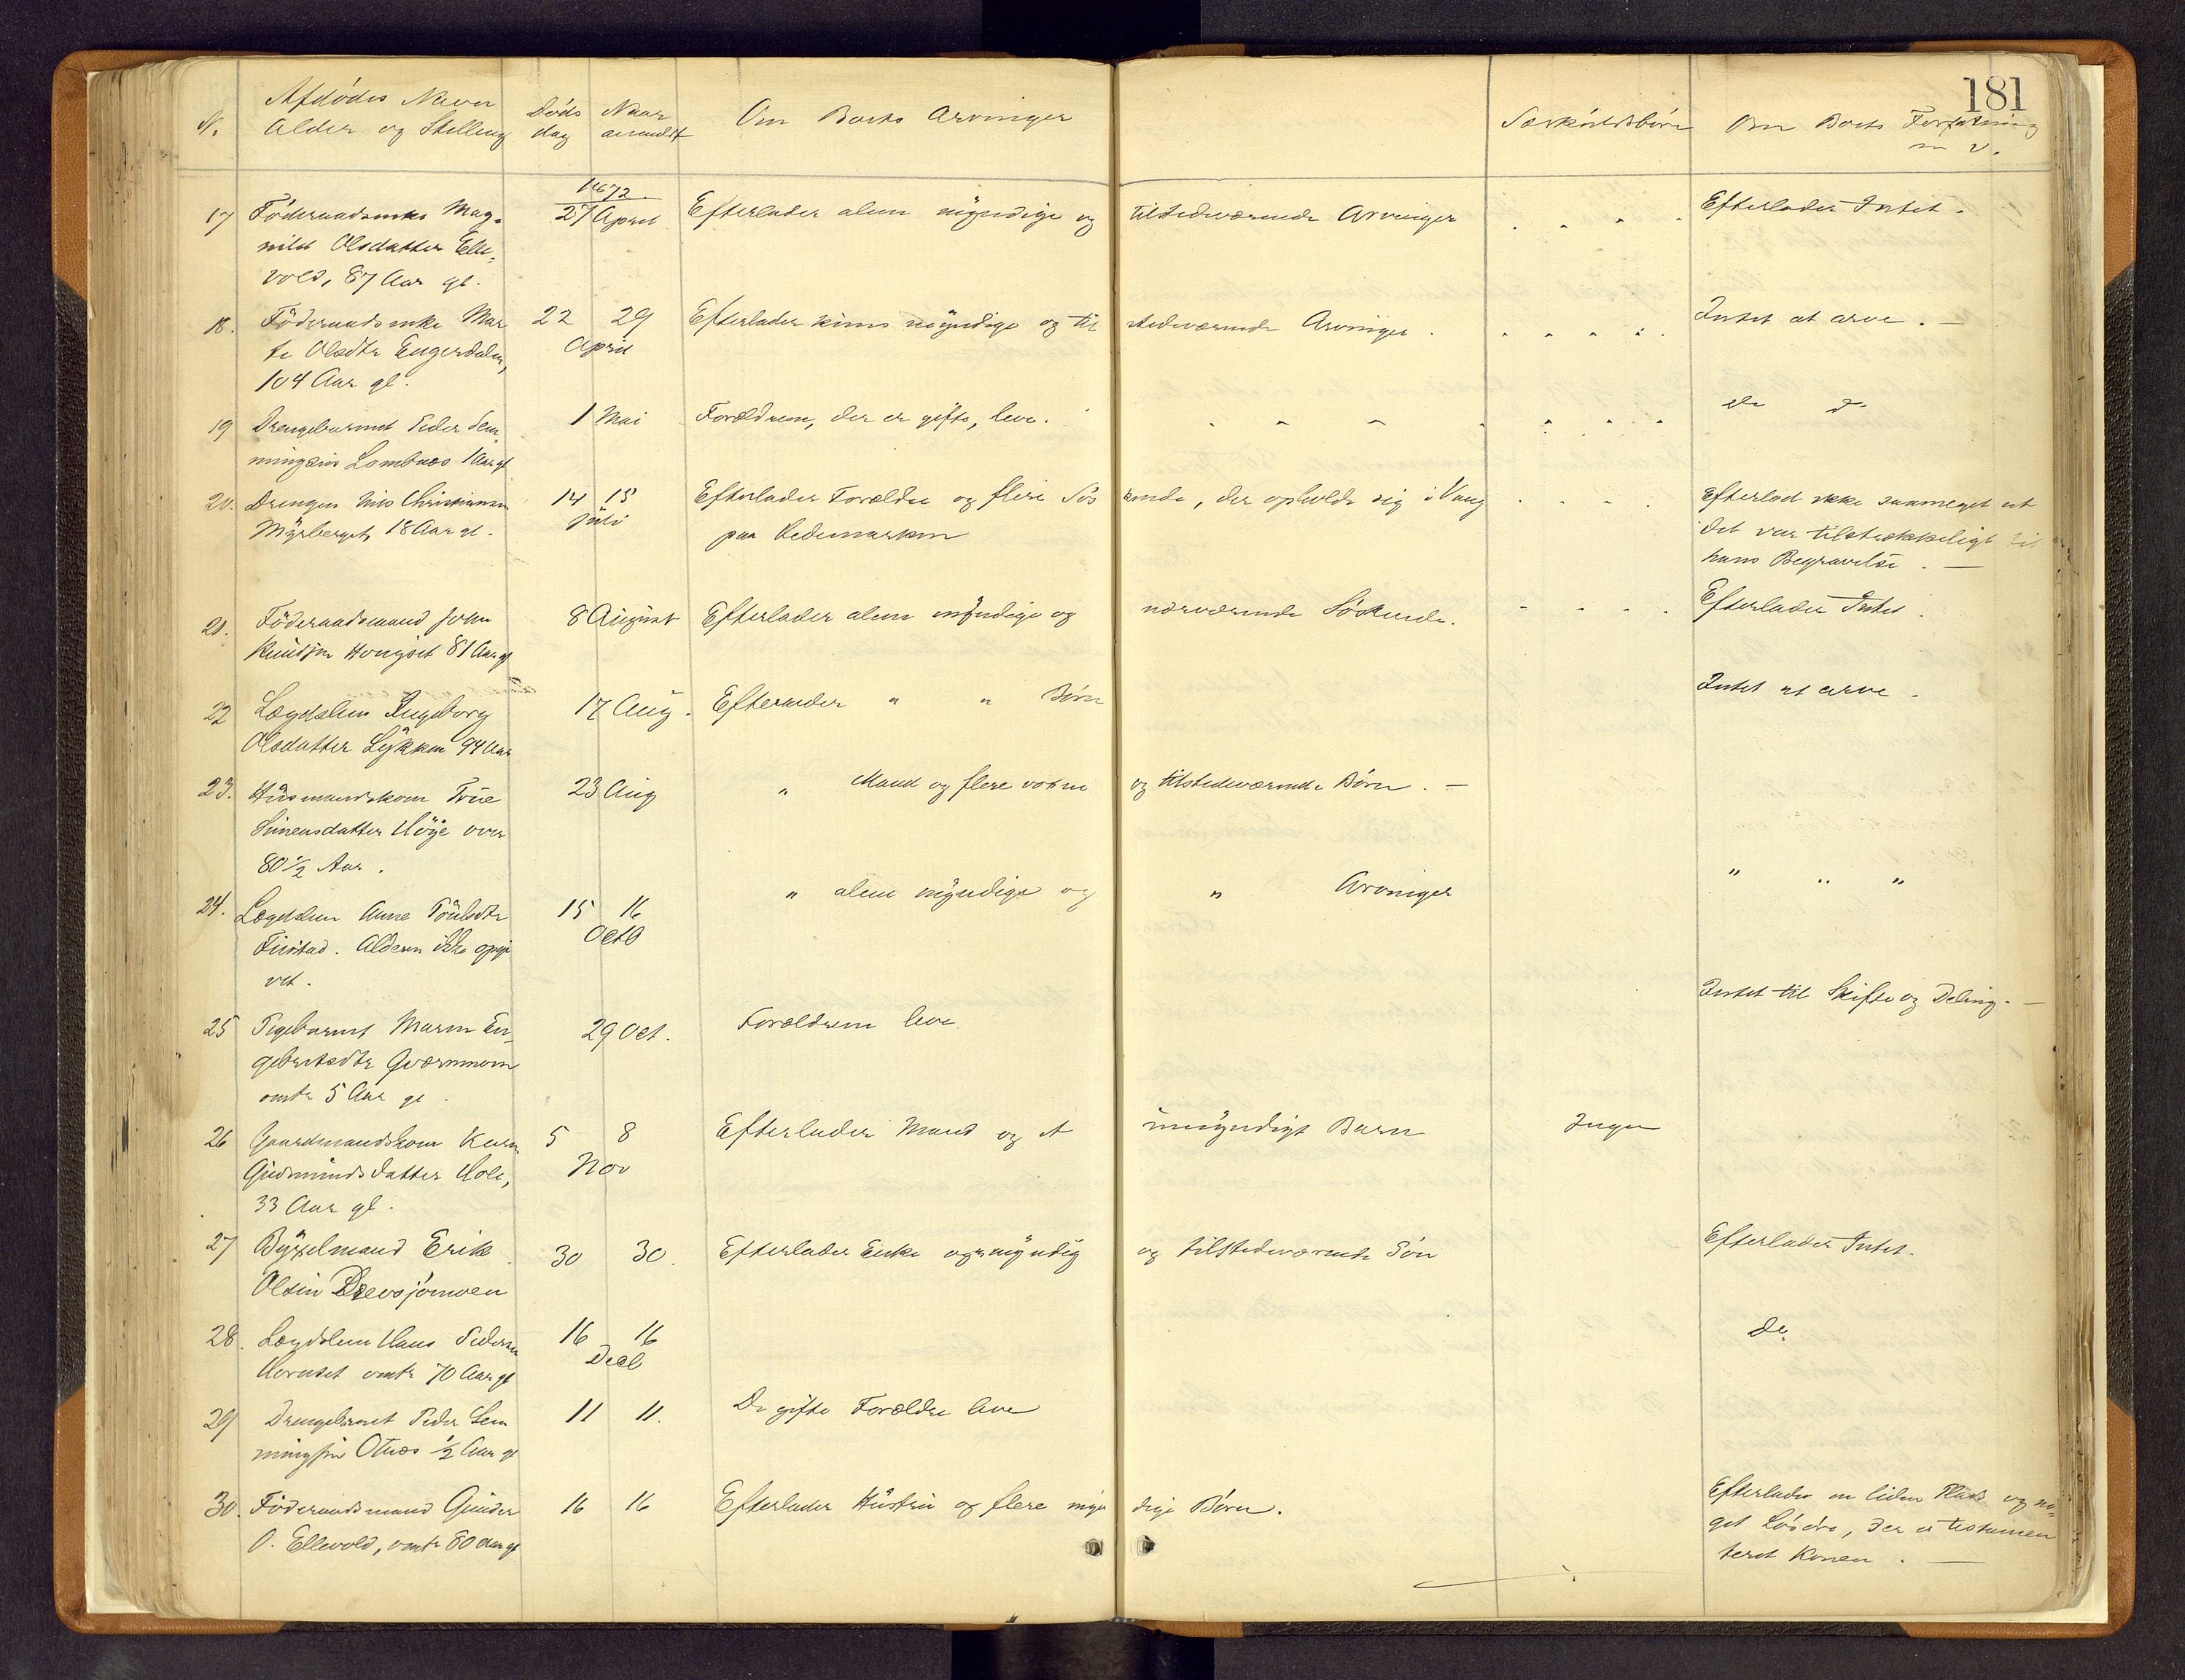 181
N. Afdødes Navn Alder og Stilling Døds dag Naar anmeldt Om Boets Arvinger Særkuldsbørn Om Boets Forfatning m. v.
1872
17 Føderaadsenke Mag- 27 April Efterlader alene myndige og tilstedeværende Arvinger Efterlader Intet.
nild Olsdatter Elle-
vold, 87 Aar gl.
18. Føderaadsenke Mar 22 29 Efterlader kuns myndige og til stedeværende Arvinger. Intet at arve. —
te Olsdtr Engerdalen, April
104 Aar gl.
19 Drengebarnet Peder Sem- 1 Mai Forældrene, der er gifte, leve. do do
mingsen Lombnæs 1 Aar gl
20. Drengen Nils Christiansen 14 15 Efterlader Forældre og flere Søs kende, der opholde sig i Vang Efterlod ikke saameget at
Myrberget, 18 Aar gl. Juli paa Hedemarken det var tilstrækkeligt til
hans Begravelse. —
21. Føderaadsmand John 8 August Efterlader alene myndige og nærværende Søskende. Efterlader Intet.
Knudsen Hongset 81 Aar gl
22 Lægdslem Ingeborg 17 Aug. Efterlader " " Børn Intet at arve.
Olsdatter Lykken 94 Aar
23. Husmandskone True 23 Aug " Mand og flere voxne og tilstedeværende Børn. —
Simensdatter Høye over
80 1/2 Aar. " " "
24. Lægdslem Anne Poulsdtr 15 16 " alene myndige og " Arvinger
Fiistad. Alderen ikke opgi Octb
vet.
Intet til Skifte og Deling. —
25 Pigebarnet Maren En- 29 Oct. Forældrene leve
gebretsdtr Qværnmoen
omtr 5 Aar gl.
26 Gaardmandskone Karen 5 8 Efterlader Mand og et umyndigt Barn Ingen
Gudmundsdatter Hole, Nov
33 Aar gl.
27 Byxelmand Erik 30 30. Efterlader Enke og myndig og tilstedeværende Søn Efterlader Intet.
Olsen Drevsjømoen
28. Lægdslem Hans Pedersen 16 16 do
Hornset omtr 70 Aar gl Decb
29 Drengebarnet Peder Sem 11 11. De gifte Forældre leve
mingsen Otnes 1/2 Aar gl
30. Føderaadsmand Gunder 16 16 Efterlader Hustru og flere myn dige Børn. Efterlader en liden Plads og no-
O. Ellevold, omtr 80 Aar gl get Løsøre, der er testamen
teret Konen. —